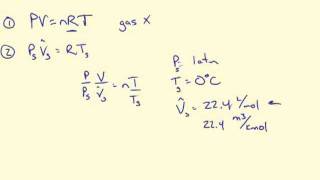 ① PV = nRT gas X
② Ps V̂s = RTs
P/Ps V/V̂s = n T/Ts
Ps 1atm
Ts = 0°C
V̂s = 22.4 L/mol ←
22.4 m³/kmol